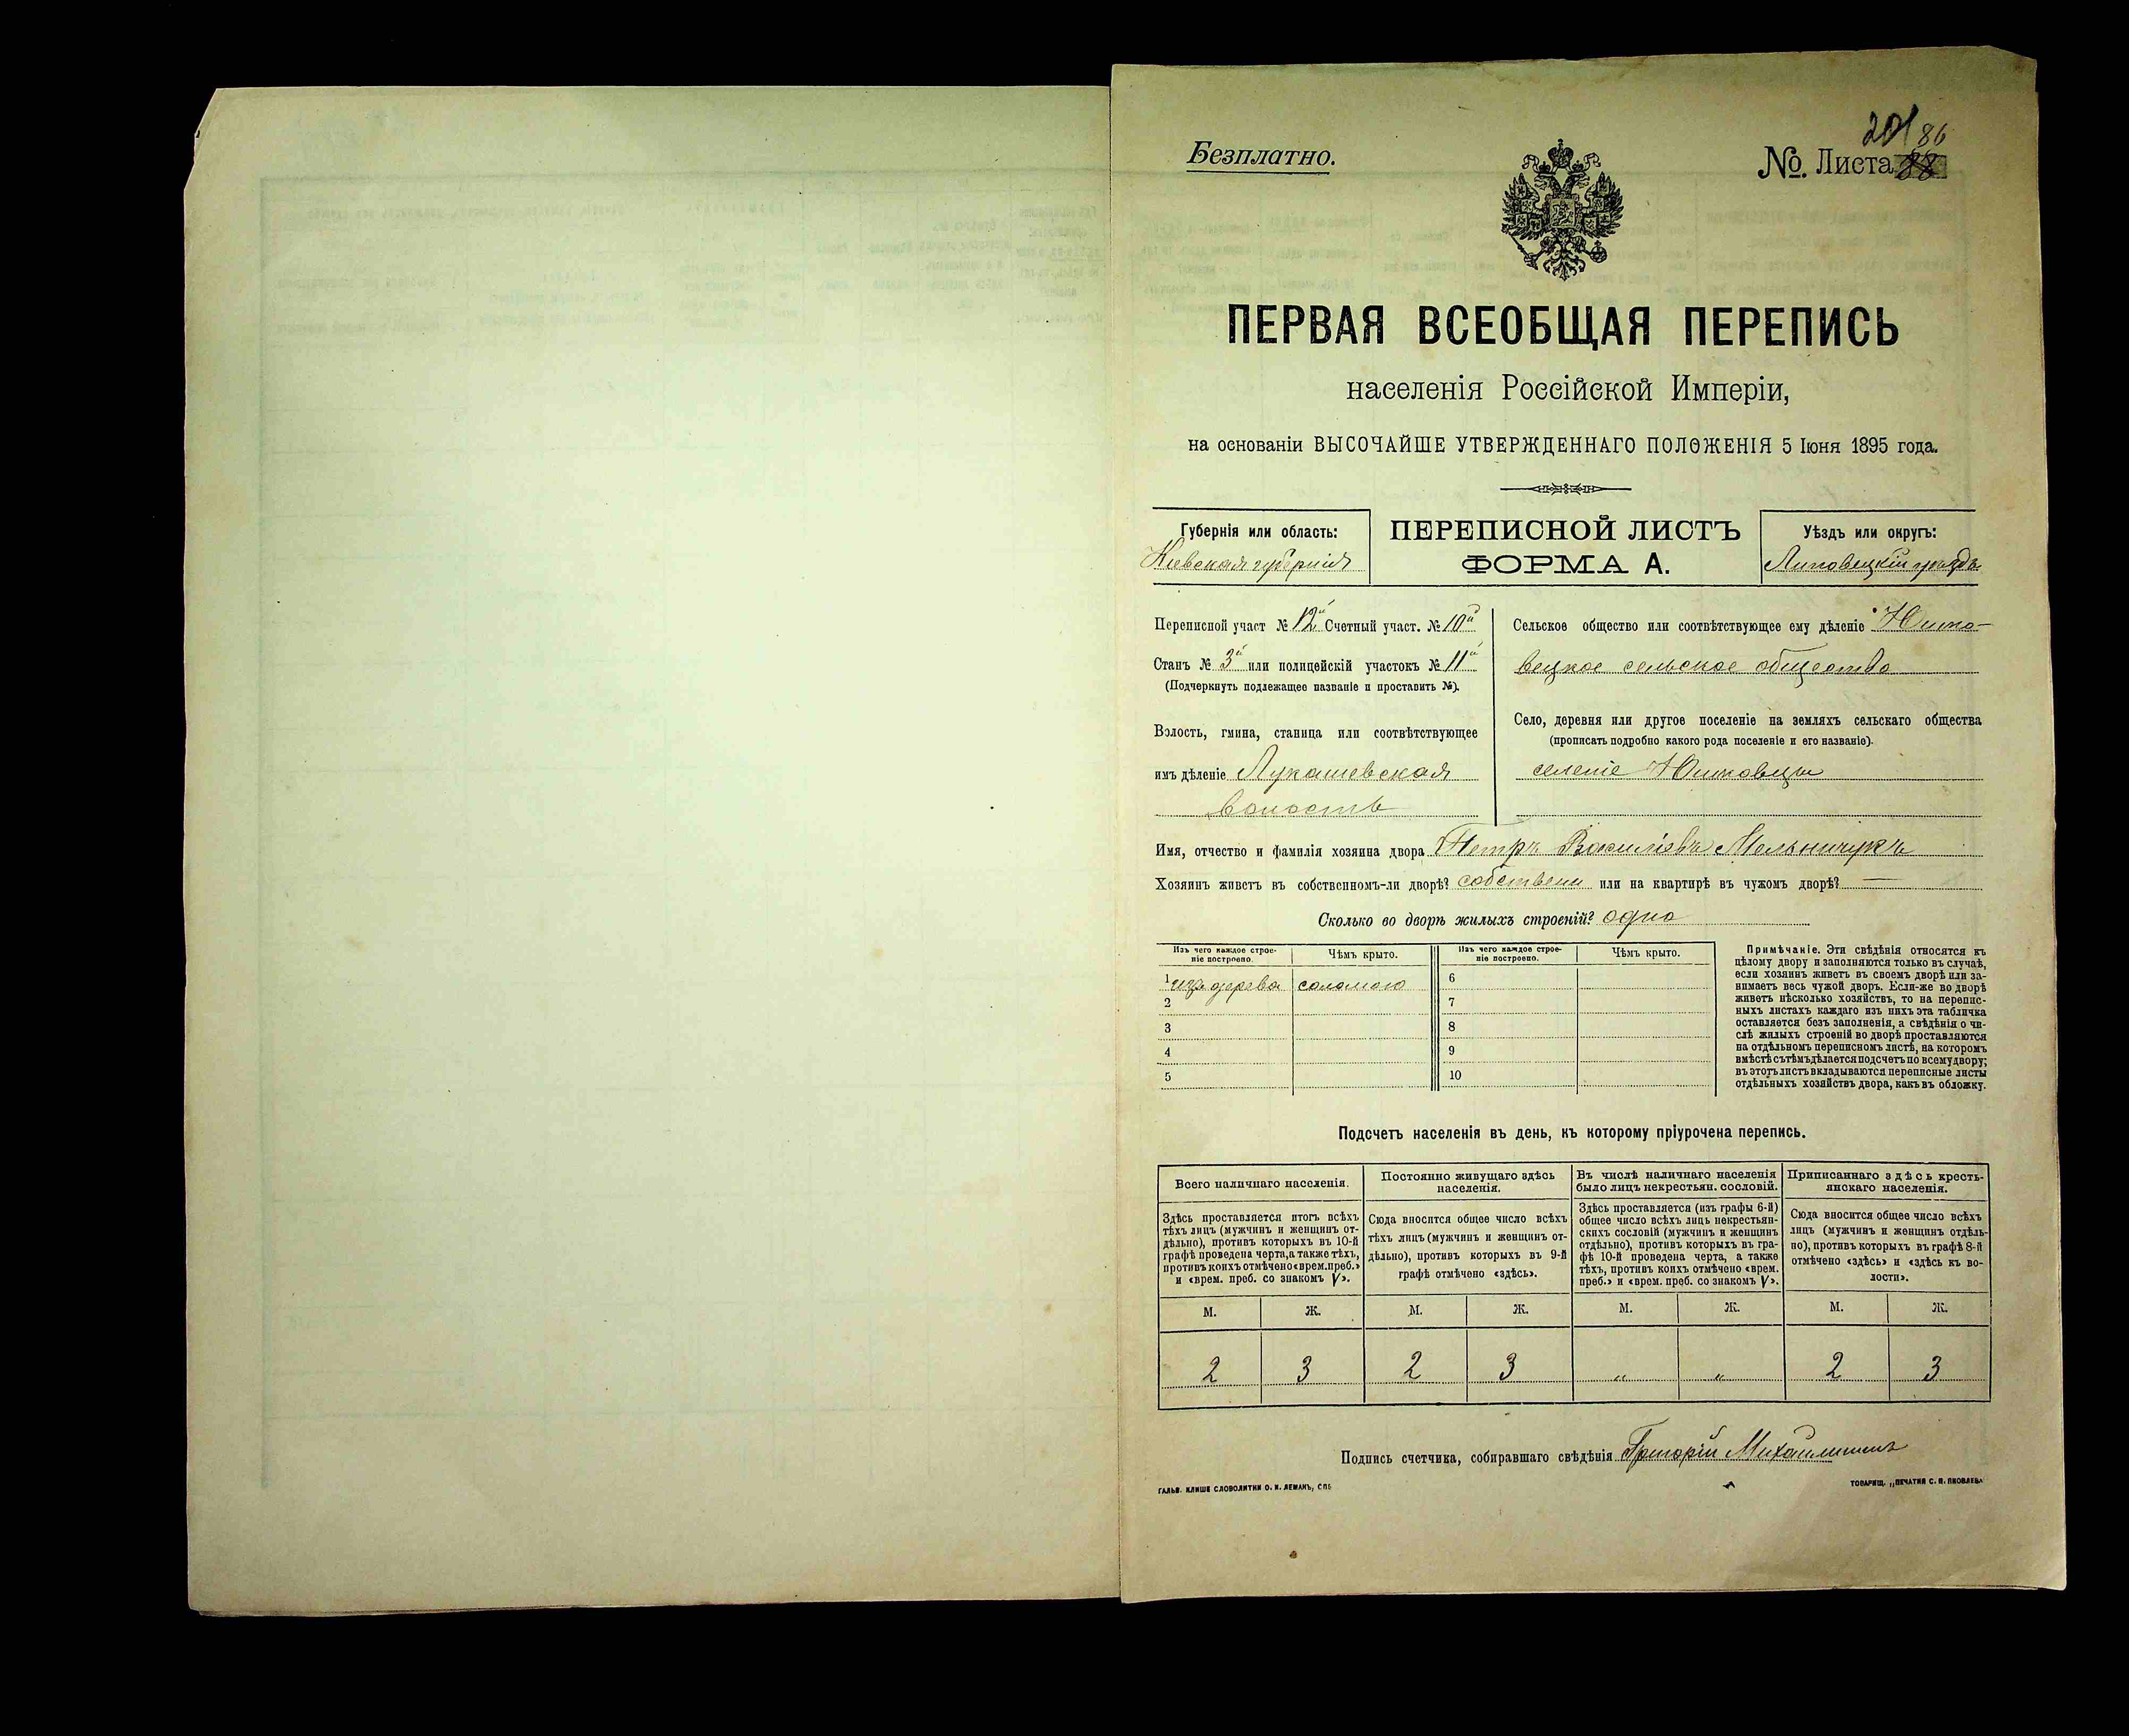 201
86
Безплатно.
№. Листа 88
ПЕРВАЯ ВСЕОБЩАЯ ПЕРЕПИСЬ
населенія Россійской Имперіи,
на основаніи ВЫСОЧАЙШЕ УТВЕРЖДЕННАГО ПОЛОЖЕНІЯ 5 Іюня 1895 года.
Губернія или область:
Кіевская губернія
ПЕРЕПИСНОЙ ЛИСТЪ
ФОРМА А.
Уѣздъ или округъ:
Липовецкій уѣздъ
Переписной участ № 12й Счетный участ. № 10й
Станъ № 3й или полицейскій участокъ № 11й
(Подчеркнуть подлежащее названіе и проставить №).
Волость, гмина, станица или соотвѣтствующее
имъ дѣленіе Лукашевская
волость
Сельское общество или соотвѣтствующее ему дѣленіе Юшко-
вецкое сельское общество
Село, деревня или другое поселеніе на земляхъ сельскаго общества
(прописать подробно какого рода поселеніе и его названіе).
селеніе Юшковцы
Имя, отчество и фамилія хозяина двора Петръ Василіевъ Мельничукъ
Хозяинъ живетъ въ собственномъ-ли дворѣ? собствени или на квартирѣ въ чужомъ дворѣ? —
Сколько во дворѣ жилыхъ строеній? одно
Изъ чего каждое строе-
ніе построено.
Чѣмъ крыто.
Изъ чего каждое строе-
ніе построено.
Чѣмъ крыто.
1 изъ дерева соломою 6
2 7
3 8
4 9
5 10
Примѣчаніе. Эти свѣдѣнія относятся къ
цѣлому двору и заполняются только въ случаѣ,
если хозяинъ живетъ въ своемъ дворѣ или за-
нимаетъ весь чужой дворъ. Если-же во дворѣ
живетъ нѣсколько хозяйствъ, то на перепис-
ныхъ листахъ каждаго изъ нихъ эта табличка
оставляется безъ заполненія, а свѣдѣнія о чи-
слѣ жилыхъ строеній во дворѣ проставляются
на отдѣльномъ переписномъ листѣ, на которомъ
вмѣстѣ съ тѣмъ дѣлается подсчетъ по всему двору;
въ этотъ листъ вкладываются переписные листы
отдѣльныхъ хозяйствъ двора, какъ въ обложку.
Подсчетъ населенія въ день, къ которому пріурочена перепись.
Всего наличнаго населенія.
Здѣсь проставляется итогъ всѣхъ
тѣхъ лицъ (мужчинъ и женщинъ от-
дѣльно), противъ которыхъ въ 10-й
графѣ проведена черта, а также тѣхъ,
противъ коихъ отмѣчено «врем. преб.»
и «врем. преб. со знакомъ V».
Постоянно живущаго здѣсь
населенія.
Сюда вносится общее число всѣхъ
тѣхъ лицъ (мужчинъ и женщинъ от-
дѣльно), противъ которыхъ въ 9-й
графѣ отмѣчено «здѣсь».
Въ числѣ наличнаго населенія
было лицъ некрестьян. сословій.
Здѣсь проставляется (изъ графы 6-й)
общее число всѣхъ лицъ некрестьян-
скихъ сословій (мужчинъ и женщинъ
отдѣльно), противъ которыхъ въ гра-
фѣ 10-й проведена черта, а также
тѣхъ, противъ коихъ отмѣчено «врем.
преб.» и «врем. преб. со знакомъ V».
Приписаннаго здѣсь кресть-
янскаго населенія.
Сюда вносится общее число всѣхъ
лицъ (мужчинъ и женщинъ отдѣль-
но), противъ которыхъ въ графѣ 8-й
отмѣчено «здѣсь» и «здѣсь къ во-
лости».
М. Ж. М. Ж. М. Ж. М. Ж.
2 3 2 3 „ „ 2 3
Подпись счетчика, собиравшаго свѣдѣнія Григорій
ГАЛЬВ. КЛИШЕ СЛОВОЛИТНИ О. И. ЛЕМАНЪ, СПБ
ТОВАРИЩ. „ПЕЧАТНЯ С. П. ЯКОВЛЕВА